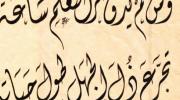 ومن لم يذق ذل التعلم ساعة
تجرع ذل الجهل طول حياته